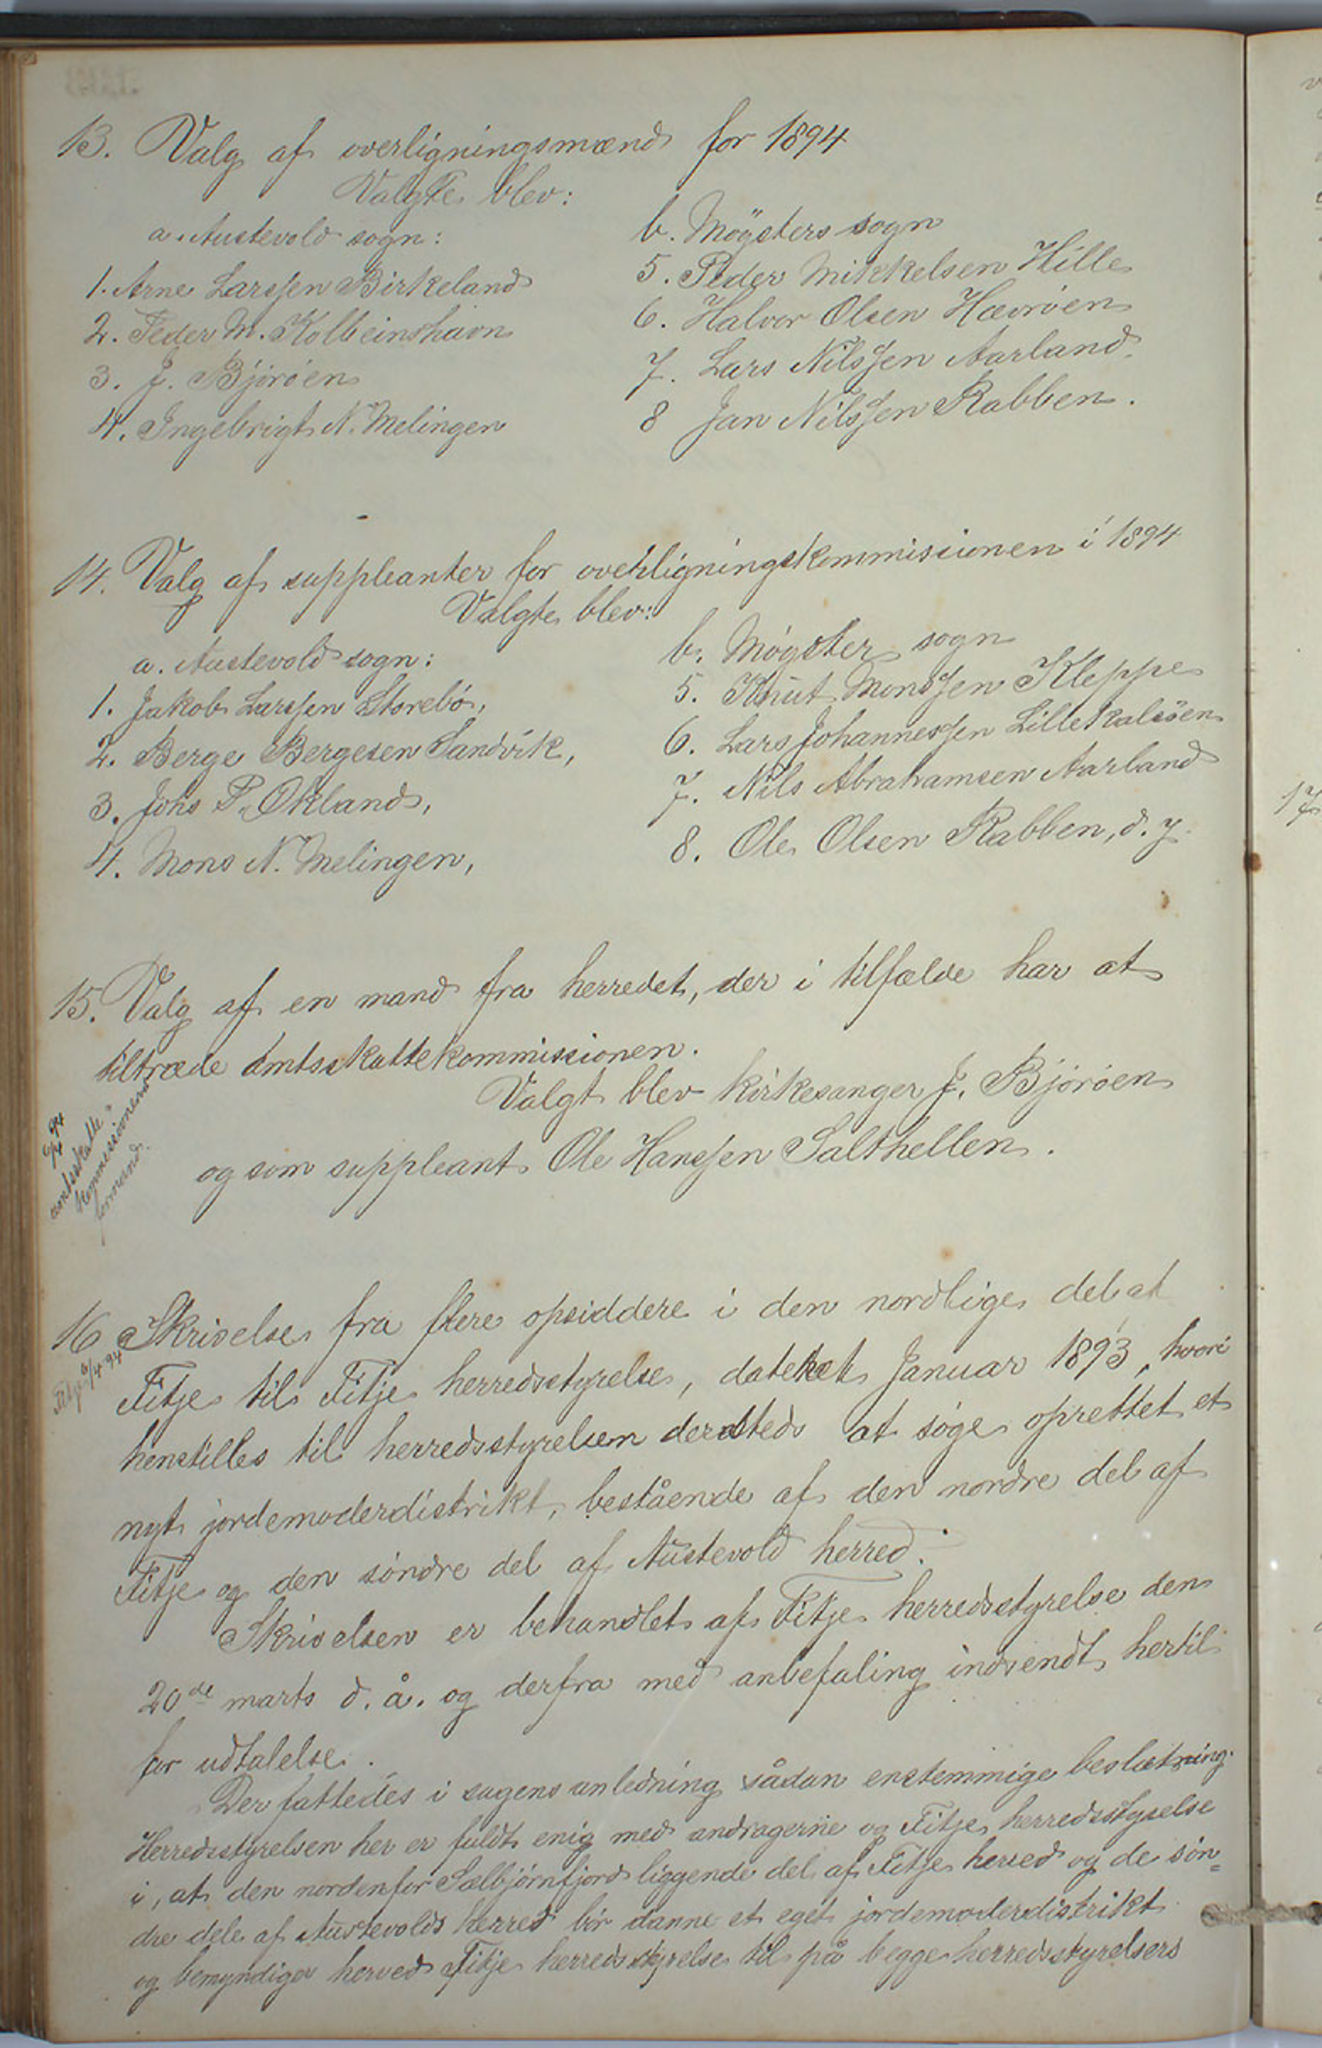 13. Valg af overligningsmænd for 1894
Valgte blev:
a. Austevold sogn:
1. Arne Larssen Birkeland
2. Peder M. Kolbeinshavn
3. J. Björöen
4. Ingebrigt N. Melingen
b. Mögsters sogn
5. Peder Mikkelsen Hille
6. Halvor Olsen Hævröen
7. Lars Nilssen Aarland.
8 Jan Nilssen Rabben.
14. Valg af suppleanter for overligningskommissionen i 1894
Valgte blev:
a. Austevold sogn:
1. Jakob Larssen Storebö,
2. Berge Bergesen Sandvik,
3. Johs P. Økland,
4. Mons N. Melingen,
b. Mögster sogn
5. Knut Monssen Kleppe
6. Lars Johannessen Lillekalsöen
7. Nils Abrahamsen Aarland
8. Ole Olsen Rabben, d. y.
15. Valg af en mand fra herredet, der i tilfælde har at
tiltræde amtsskattekommissionen.
Valgt blev kirkesanger J. Björöen
og som suppleant Ole Hanssen Salthellen.
6/4 94
amtsskatte-
kommissionens
formand.
16 Skrivelse fra flere opsiddere i den nordlige del af
Fitje til Fitje herredsstyrelse, dateret Januar 1893, hvori
henstilles til herredsstyrelsen dersteds at söge oprettet et
nyt jordemoderdistrikt, bestående af den nordre del af
Fitje og den söndre del af Austevold herred.
Fitje 6/4 94
Skrivelsen er behandlet af Fitje herredsstyrelse den
20de marts d. å. og derfra med anbefaling indsendt hertil
for udtalelse.
Der fattedes i sagens anledning sådan enstemmige beslutning:
Herredsstyrelsen her er fuldt enig med andragerne og Fitje herredsstyrelse
i, at den nordenfor Sælbjörnfjord liggende del af Fitje herred og de sön-
dre dele af Austevolds herred bör danne et eget jordemoderdistrikt
og bemyndiger herved Fitje herredsstyrelse til på begge herredsstyrelsers
17